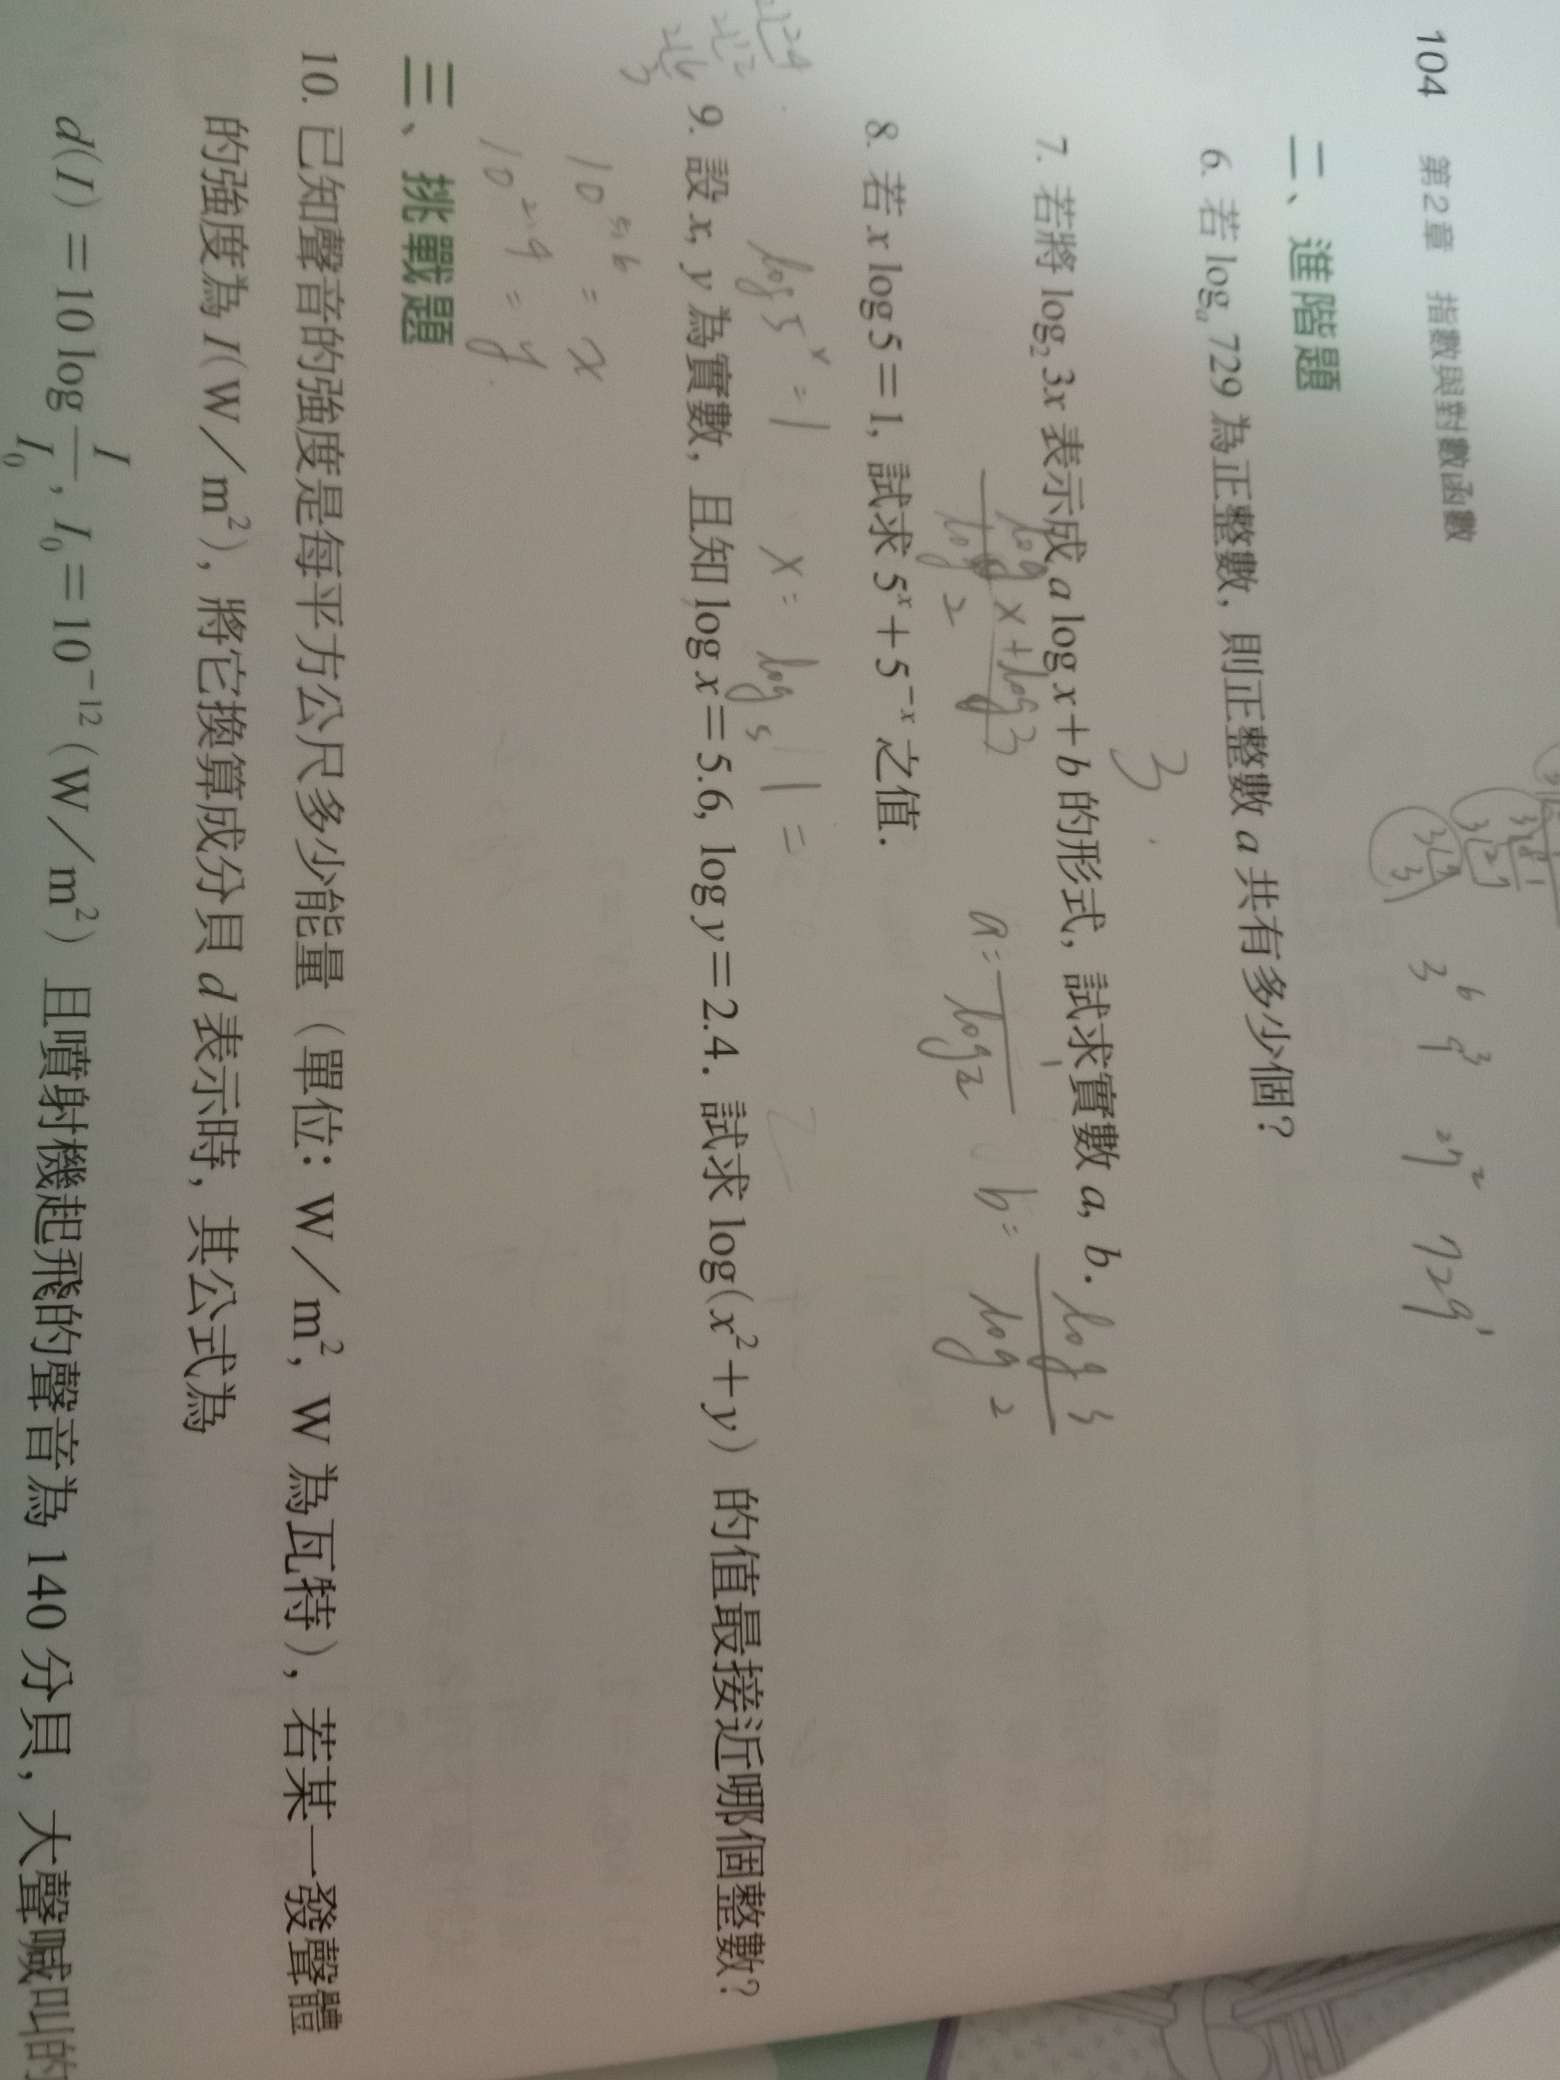 104 第2章 指數與對數函數
二、進階題
3⁶ 9³ 27² 729¹
6. 若 logₐ 729 為正整數, 則正整數 a 共有多少個?
3
7. 若將 log₂ 3x 表示成 a log x + b 的形式, 試求實數 a, b.
log x + log 3
log 2
a = 1/log 2 b = log 3/log 2
8. 若 x log 5 = 1, 試求 5ˣ + 5⁻ˣ 之值.
log 5ˣ = 1 x = log₅ 1 =
2 24
2 12
2 6
3
9. 設 x, y 為實數, 且知 log x = 5.6, log y = 2.4. 試求 log(x² + y) 的值最接近哪個整數?
10⁵·⁶ = x
10²·⁴ = y
三、挑戰題
10. 已知聲音的強度是每平方公尺多少能量 (單位: W/m², W 為瓦特), 若某一發聲體
的強度為 I(W/m²), 將它換算成分貝 d 表示時, 其公式為
d(I) = 10 log I/I₀, I₀ = 10⁻¹² (W/m²) 且噴射機起飛的聲音為 140 分貝, 大聲喊叫的